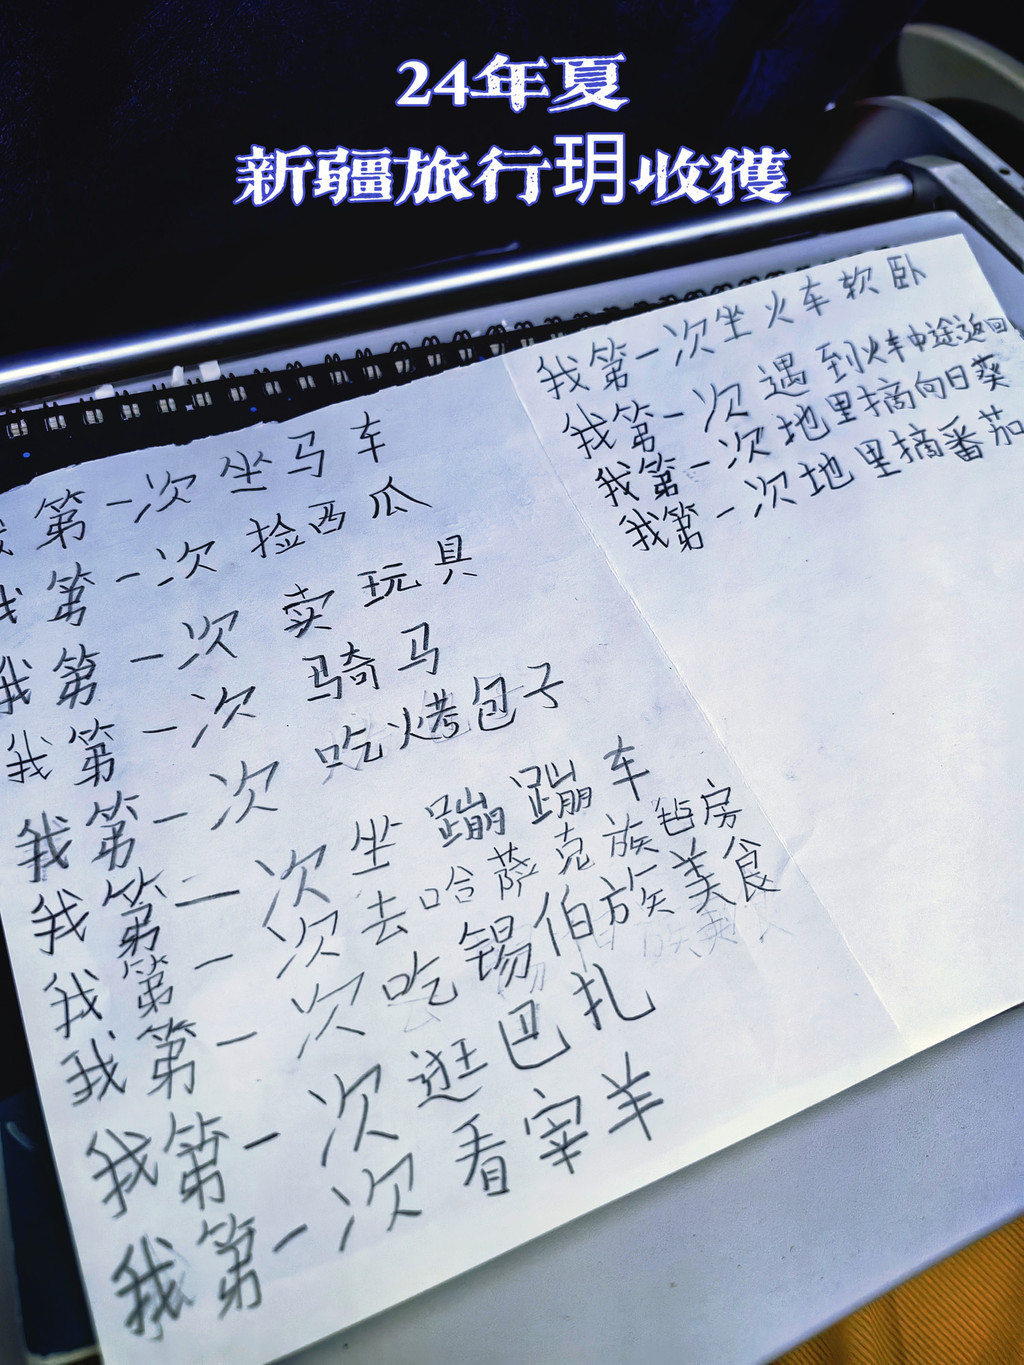 24年夏
新疆旅行玥收獲
我第一次坐马车
我第一次捡西瓜
我第一次卖玩具
我第一次骑马
我第一次吃烤包子
我第一次坐蹦蹦车
我第一次去哈萨克族毡房
我第一次吃锡伯族美食
我第一次逛巴扎
我第一次看宰羊
我第一次坐火车软卧
我第一次遇到火车中途返回
我第一次地里摘向日葵
我第一次地里摘番茄